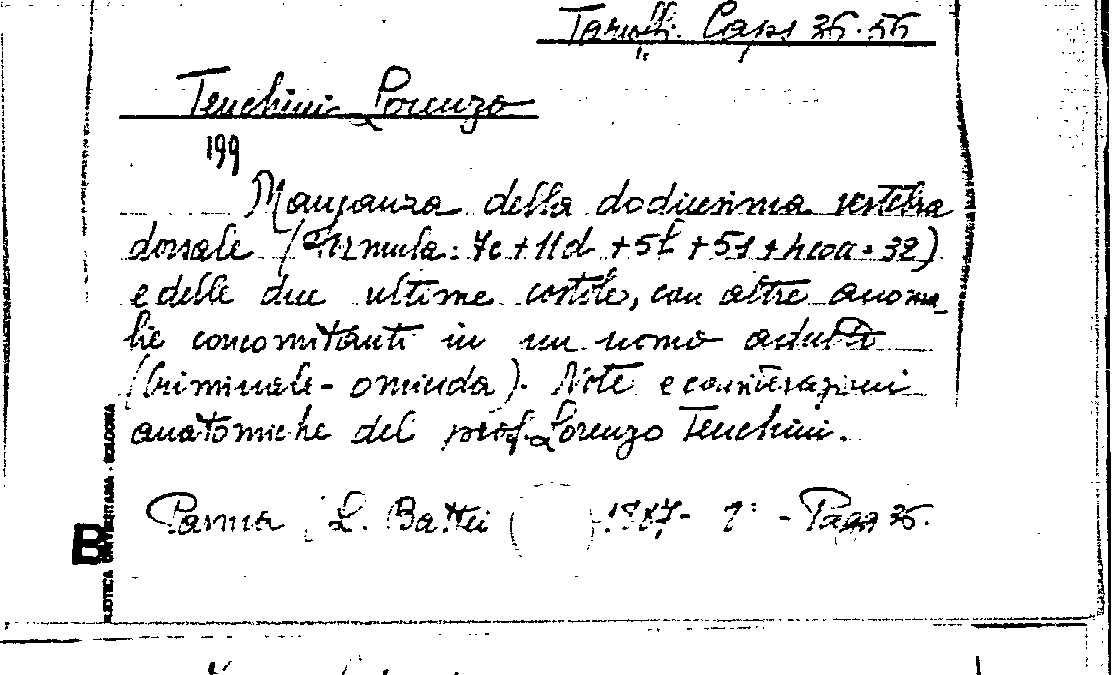 Taruffi. Caps 36.56
Tenchini Lorenzo
199
Mancanza della dodicesima vertebra
dorsale (Formula: 7c + 11d + 5l + 5s + 4coc = 32)
e delle due ultime costole, con altre anoma_
lie concomitanti in un uomo adulto
(Criminale - omicida). Note e considerazioni
anatomiche del prof. Lorenzo Tenchini.
Parma L. Battei 1887- 8° - Pagg 36.
BIBLIOTECA UNIVERSITARIA - BOLOGNA